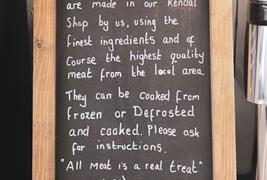 are made in our Kendal
Shop by us, using the
finest ingredients and of
Course the highest quality
meat from the local area.
They can be cooked from
frozen or Defrosted
and cooked. Please ask
for instructions.
"All Meat is a real treat"